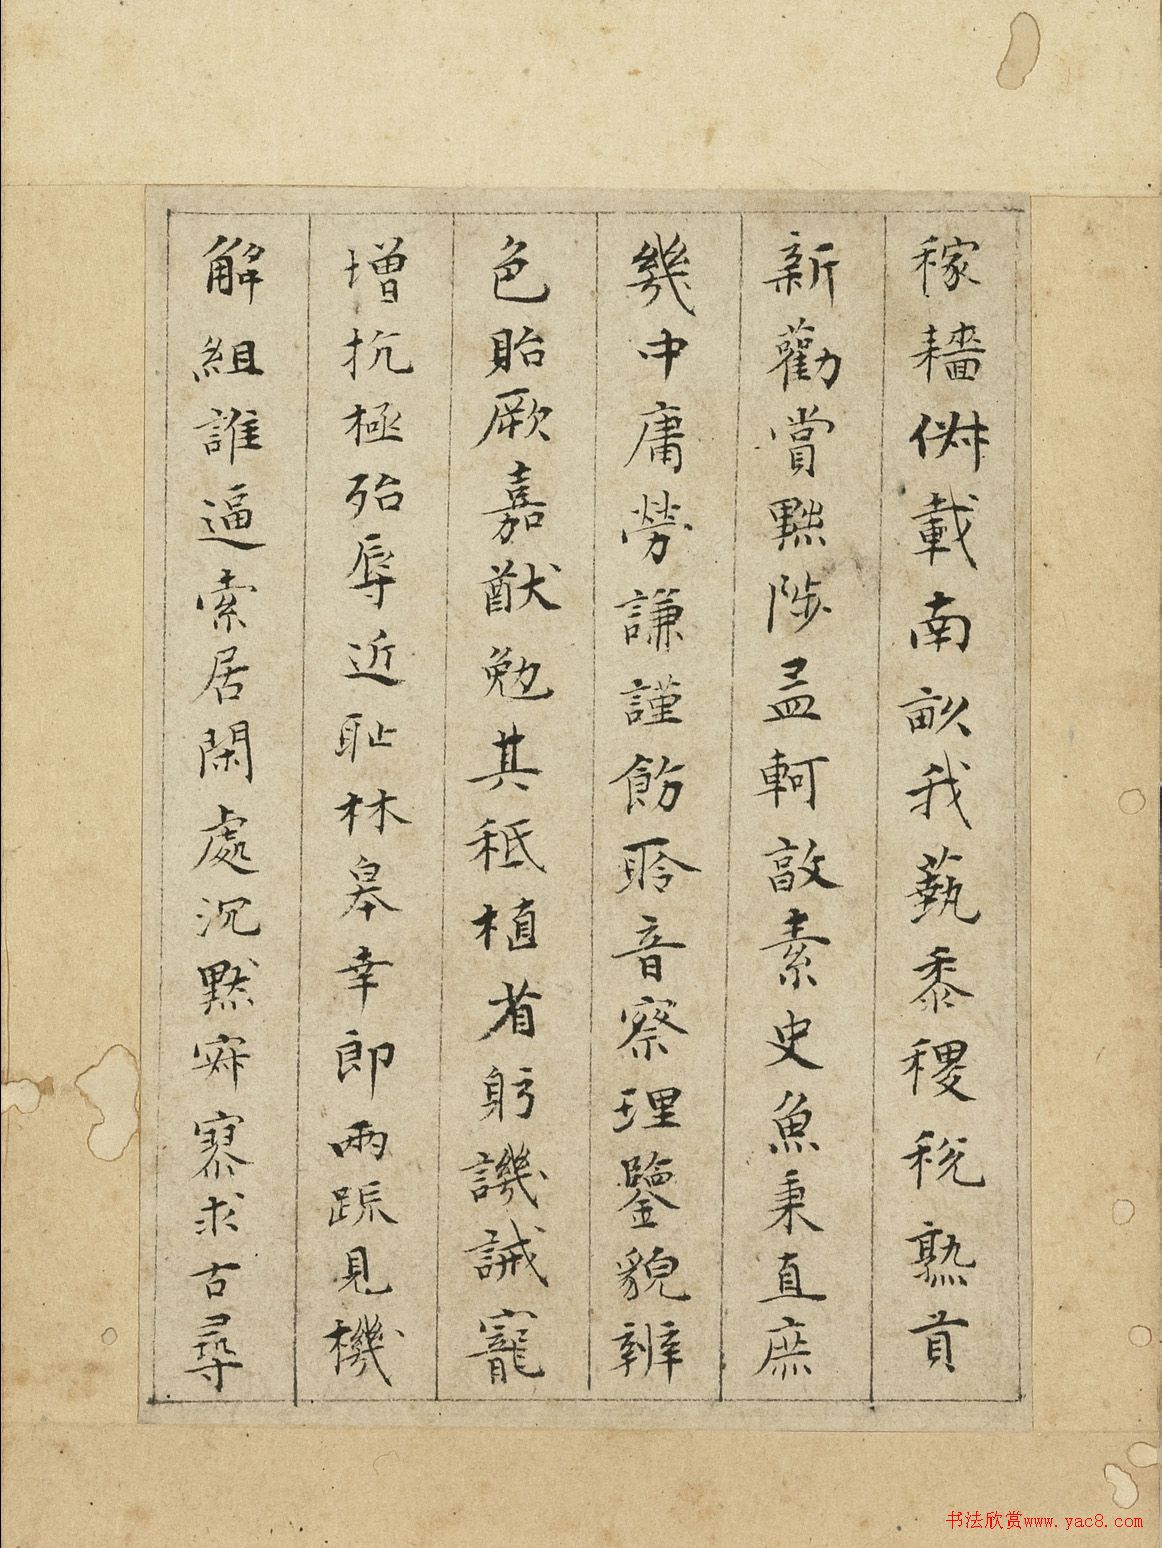 稼穡俶載南畝我藝黍稷稅熟貢
新勸賞黜陟孟軻敦素史魚秉直庶
幾中庸勞謙謹飭聆音察理鑒貌辨
色貽厥嘉猷勉其祗植省躬譏誡寵
增抗極殆辱近恥林皋幸即兩疏見機
解組誰逼索居閑處沉默寂寥求古尋
书法欣赏www.yac8.com